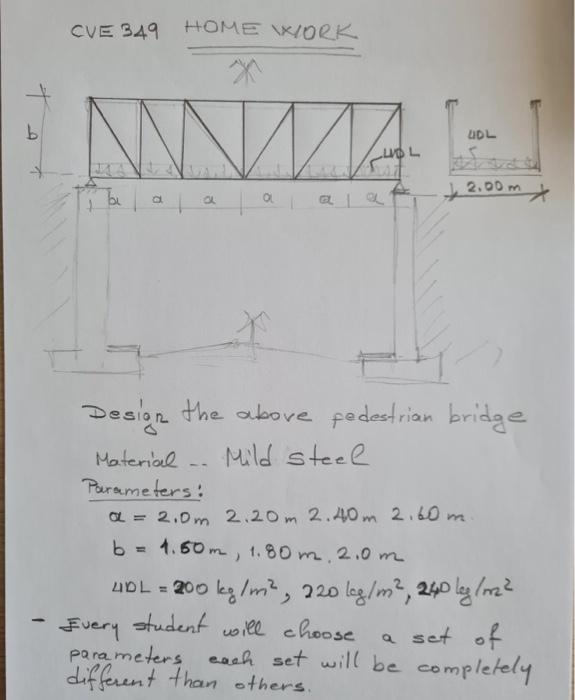 CVE 349 HOME WORK
b
UDL
UDL
2.00 m
a a a a a a
Design the above pedestrian bridge
Material -- Mild steel
Parameters:
a = 2.0m 2.20m 2.40m 2.60m.
b = 1.60m, 1.80m, 2.0m
UDL = 200 kg/m², 220 kg/m², 240 kg/m²
- Every student will choose a set of
parameters each set will be completely
different than others.